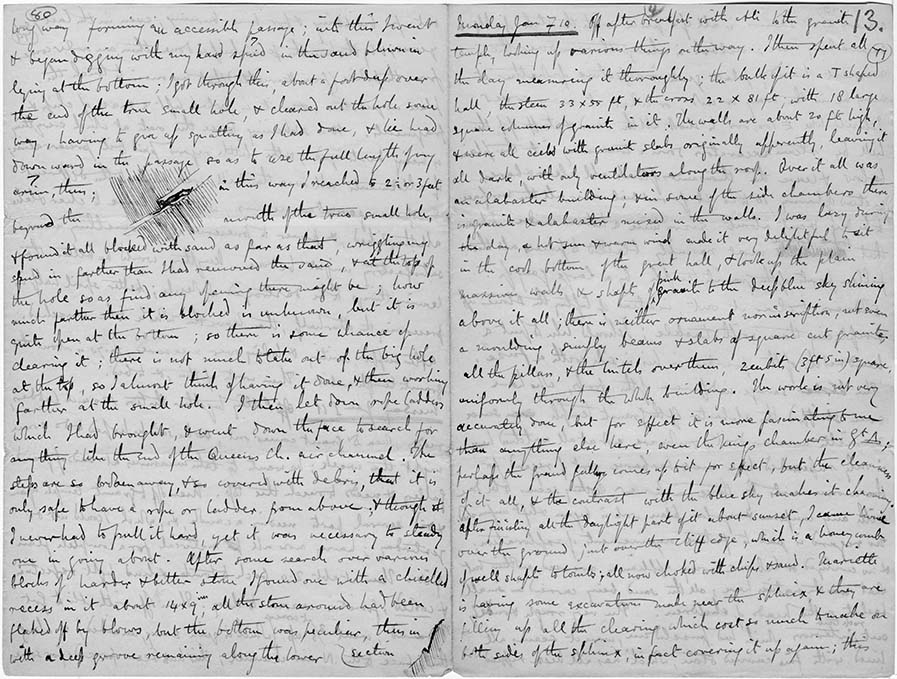 80
long way forming an accessible passage; into this I went
& began digging with my hand spud in the sand blown in
lying at the bottom: I got through this, about a foot deep over
the end of the true small hole, & cleared out the hole some
way, having to give up squatting as I had done, & lie head
downward in the passage so as to use the full length of my
arm, thus; in this way I reached to 2½ or 3 feet
beyond the mouth of the true small hole,
& found it all blocked with sand as far as that, wriggling my
spud in farther than I had removed the sand, & at the top of
the hole so as find any opening there might be; how
much farther then it is blocked is unknown, but it is
quite open at the bottom; so there is some chance of
clearing it; there is not much to take out of the big hole
at the top, so I almost think of having it done, & then working
farther at the small hole. I then let down rope ladder
which I had brought, & went down the face to search for
anything like the end of the Queens Ch. air channel. The
steps are so broken away, & so covered with debris, that it is
only safe to have a rope or ladder from above & though
I never had to pull it hard, yet it was necessary to steady
one in going about. After some search over various
blocks of harder & better stone I found one with a chiselled
recess in it about 14 x 9 all the stone around had been
flaked off by blows, but the bottom was peculiar, thus in
with a deep groove remaining along the lower section
13.
Monday Jan 7 10. Off after breakfast with Ali to the granite
temple, looking up various things on the way. I then spent all
the day measuring it thoroughly; the bulk of it is a T shaped
hall the stem 33 x 58 ft, & the cross 22 x 81 ft, with 18 large
square columns of granite in it. The walls are about 20 ft high,
& were all ceiled with granite slabs originally apparently, leaving it
all dark with only ventilators along the roof. Over it all was
an alabaster building; & in some of the side chambers there
is granite & alabaster mixed in the walls. I was lazy during
the day, a hot sun & warm wind made it very delightful to sit
in the cool bottom of the great hall, & look up the plain
massive walls & shafts of pink granite to the deep blue sky shining
above it all; there is neither ornament nor inscription, not even
a moulding simply beams & slabs of square cut granite
all the pillars, & the lintels over them, 2 cubits (3 ft 5 in) square,
uniformly through the whole building. The work is not very
accurately done, but for effect it is more fascinating to me
than anything else here, even the Kings chamber in Gt Δ;
perhaps the grand gallery comes up to it for effect, but the clearness
of it all, & the contrast with the blue sky makes it charming
After finishing all the daylight part of it about sunset, I came
over the ground just over the cliff edge, which is a honeycomb
of well shafts to tombs; all now choked with chips & sand. Mariette
is having some excavation made near the sphinx & they are
filling up all the clearing which cost so much to make on
both sides of the sphinx, in fact covering it up again; this